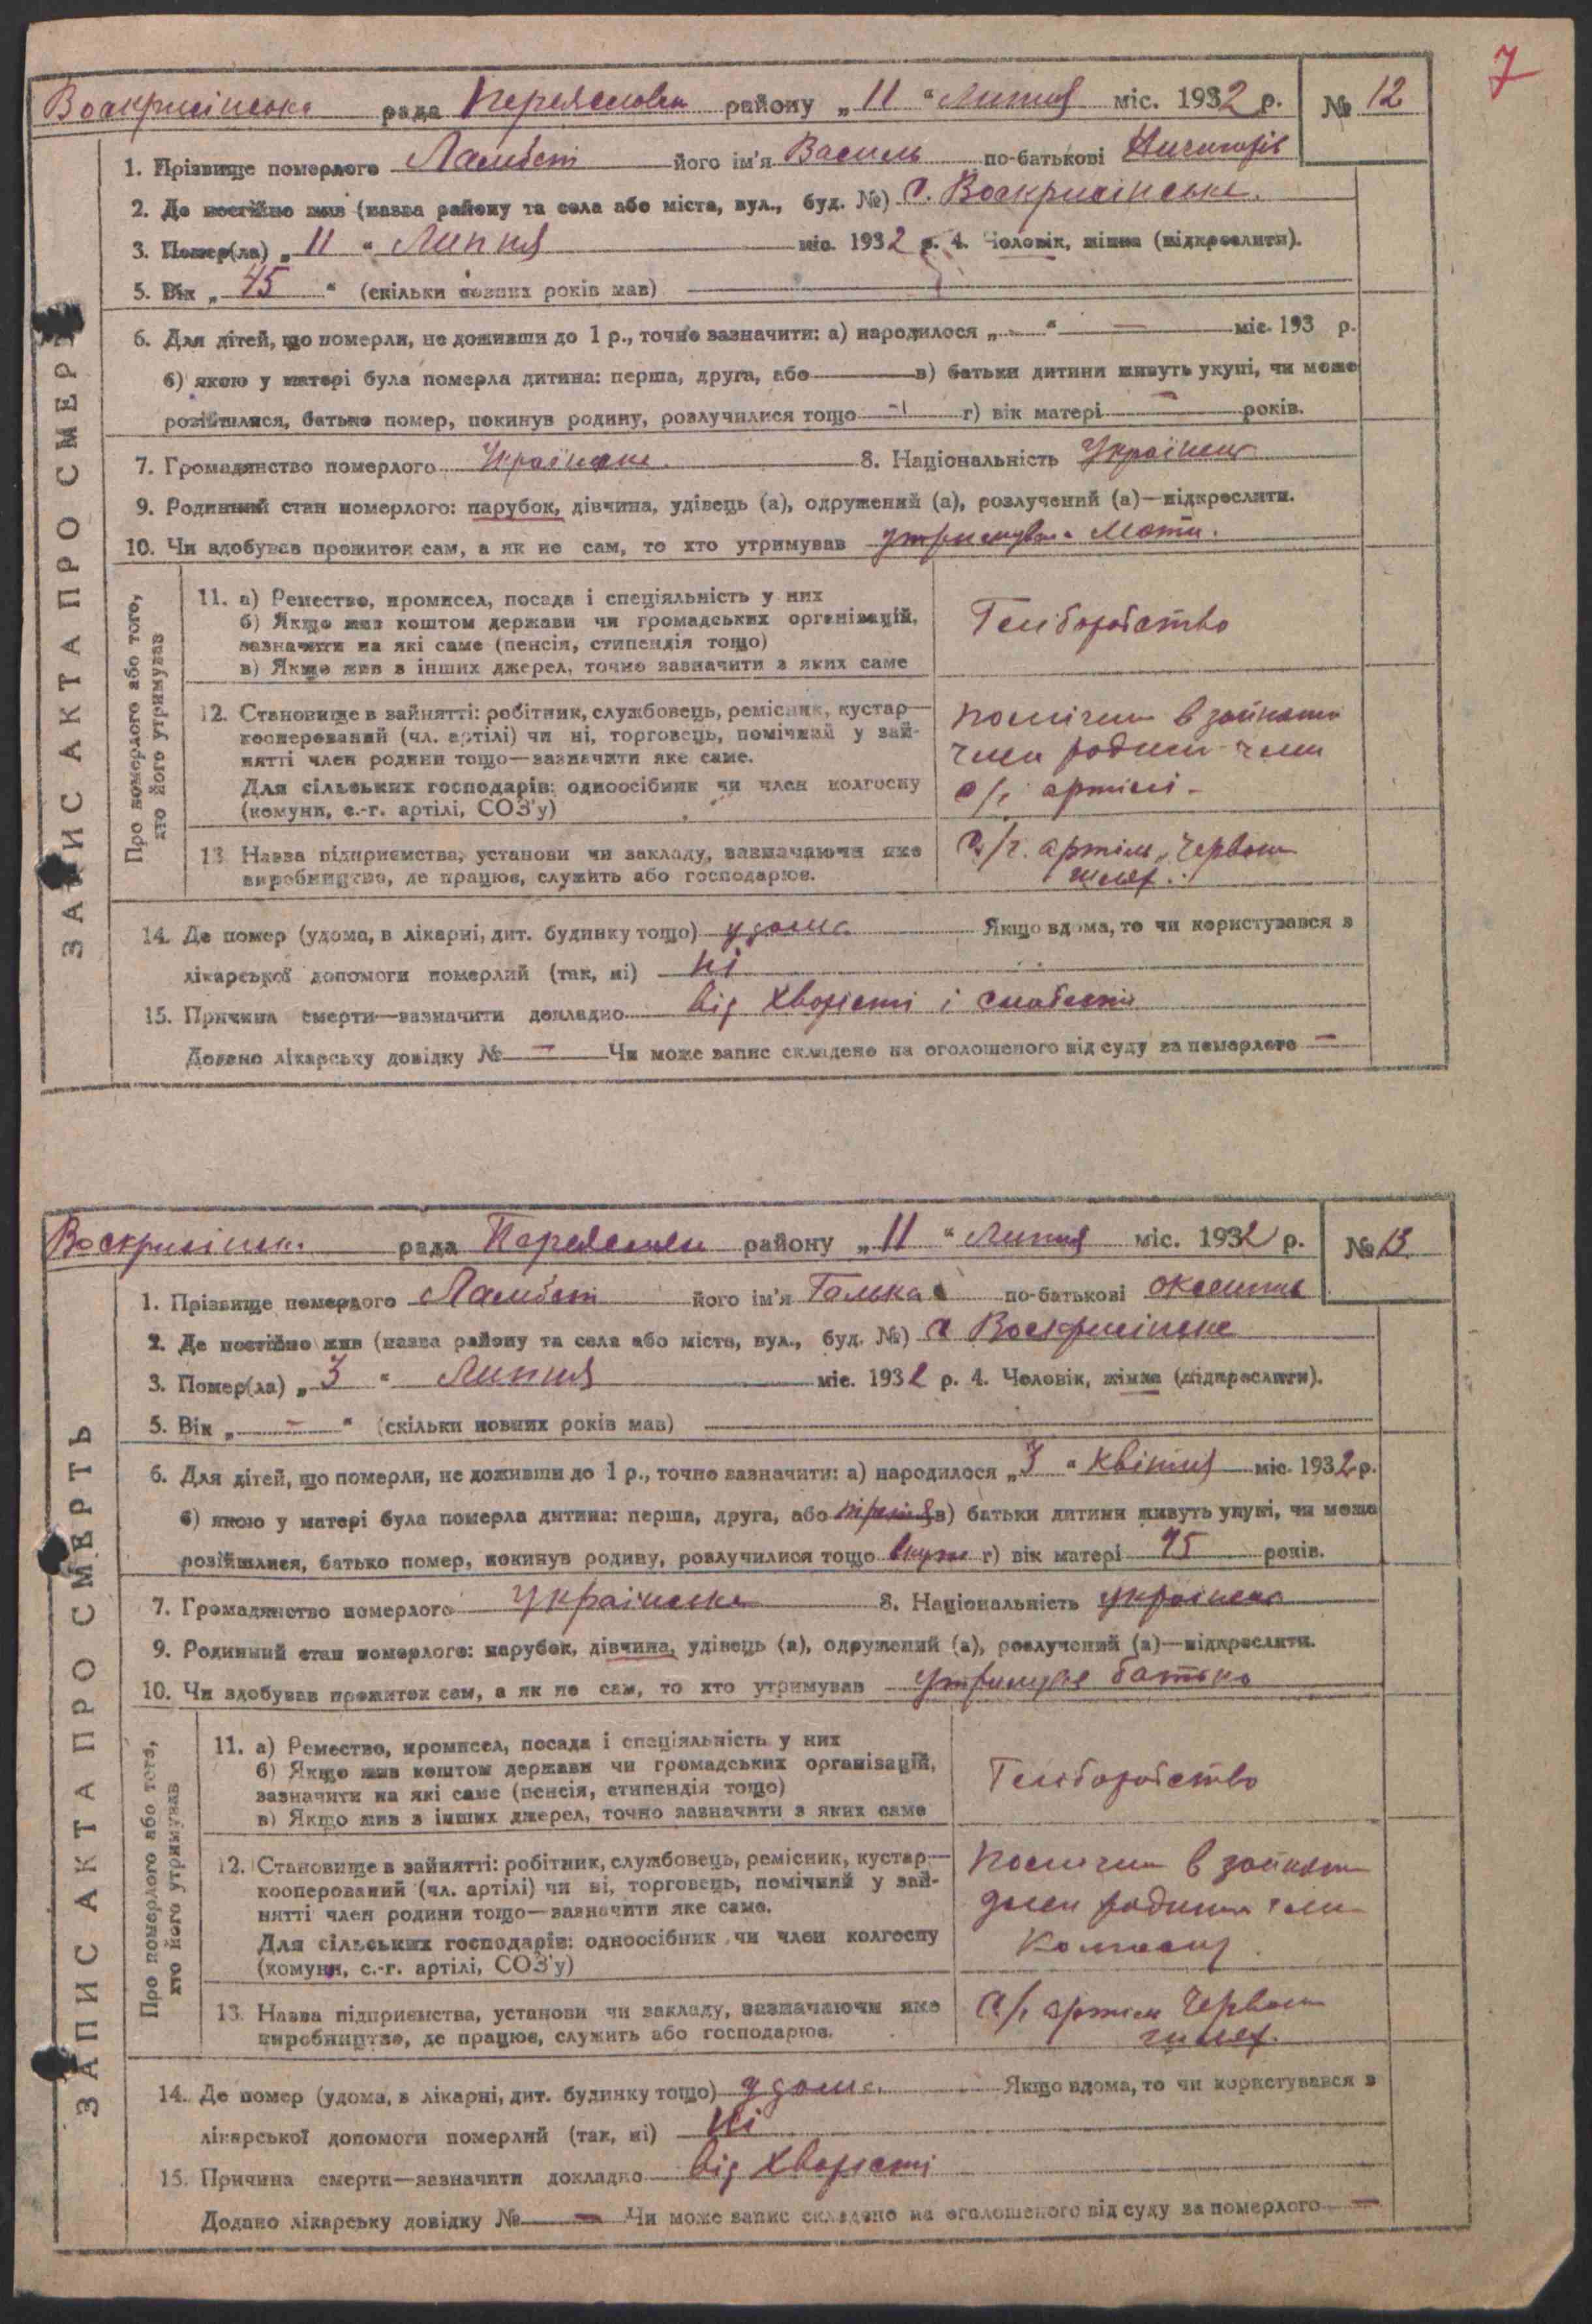 7
Воскрисінська рада Переяславськ району „ 11 “ Липня міс. 1932 р. № 12
1. Прізвище померлого його ім'я Василь по-батькові
2. Де постійно жив (назва району та села або міста, вул., буд. №) с. Воскрисінське.
3. Помер(ла) „ 11 “ Липня міс. 1932 р. 4. Чоловік, жінка (підкреслити).
5. Вік „ 45 “ (скільки повних років мав)
6. Для дітей, що померли, не доживши до 1 р., точно зазначити: а) народилося „ — “ — міс. 193 р.
б) якою у матері була померла дитина: перша, друга, або — в) батьки дитини живуть укупі, чи може
розійшлися, батько помер, покинув родину, розлучилися тощо — г) вік матері — років.
7. Громадянство померлого Українське 8. Національність Українець
9. Родинний стан померлого: парубок, дівчина, удівець (а), одружений (а), розлучений (а)—підкреслити.
10. Чи здобував прожиток сам, а як не сам, то хто утримував утримувала Мати.
ЗАПИС АКТА ПРО СМЕРТЬ
Про померлого або того,
хто його утримував
11. а) Ремество, промисел, посада і спеціяльність у них
б) Якщо жив коштом держави чи громадських організацій,
зазначити на які саме (пенсія, стипендія тощо)
в) Якщо жив з інших джерел, точно зазначити з яких саме
Гліборобство
12. Становище в зайнятті: робітник, службовець, ремісник, кустар—
кооперований (чл. артілі) чи ні, торговець, помічний у зай-
нятті член родини тощо—зазначити яке саме.
Для сільських господарів: одноосібник чи член колгоспу
(комуни, с.-г. артілі, СОЗ'у)
помічний в зайнятті
член родини член
с/г артілі -
13. Назва підприємства, установи чи закладу, зазначаючи яке
виробництво, де працює, служить або господарює.
С/г. артіль „Червон
шлях“
14. Де помер (удома, в лікарні, дит. будинку тощо) удома Якщо вдома, то чи користувався з
лікарської допомоги померлий (так, ні) ні
15. Причина смерти—зазначити докладно від хворісті і слабості
Додано лікарську довідку № — Чи може запис складено на оголошеного від суду за померлого —
Воскрисінська рада Переяславськ району „ 11 “ Липня міс. 1932 р. № 13
1. Прізвище померлого його ім'я Галька по-батькові
2. Де постійно жив (назва району та села або міста, вул., буд. №) с Воскрисінське
3. Помер(ла) „ 3 “ Липня міс. 1932 р. 4. Чоловік, жінка (підкреслити).
5. Вік „ — “ (скільки повних років мав)
6. Для дітей, що померли, не доживши до 1 р., точно зазначити: а) народилося „ 3 “ Квітня міс. 1932 р.
б) якою у матері була померла дитина: перша, друга, або третя в) батьки дитини живуть укупі, чи може
розійшлися, батько помер, покинув родину, розлучилися тощо вкупі г) вік матері років.
7. Громадянство померлого Українське 8. Національність українка
9. Родинний стан померлого: парубок, дівчина, удівець (а), одружений (а), розлучений (а)—підкреслити.
10. Чи здобував прожиток сам, а як не сам, то хто утримував утримував батько
ЗАПИС АКТА ПРО СМЕРТЬ
Про померлого або того,
хто його утримував
11. а) Ремество, промисел, посада і спеціяльність у них
б) Якщо жив коштом держави чи громадських організацій,
зазначити на які саме (пенсія, стипендія тощо)
в) Якщо жив з інших джерел, точно зазначити з яких саме
Гліборобство
12. Становище в зайнятті: робітник, службовець, ремісник, кустар—
кооперований (чл. артілі) чи ні, торговець, помічний у зай-
нятті член родини тощо—зазначити яке саме.
Для сільських господарів: одноосібник чи член колгоспу
(комуни, с.-г. артілі, СОЗ'у)
помічний в зайнятті
член родини член
колгоспу
13. Назва підприємства, установи чи закладу, зазначаючи яке
виробництво, де працює, служить або господарює.
С/г артіль Червон
шлях.
14. Де помер (удома, в лікарні, дит. будинку тощо) удома. Якщо вдома, то чи користувався з
лікарської допомоги померлий (так, ні) ні
15. Причина смерти—зазначити докладно від хворісті
Додано лікарську довідку № — Чи може запис складено на оголошеного від суду за померлого —